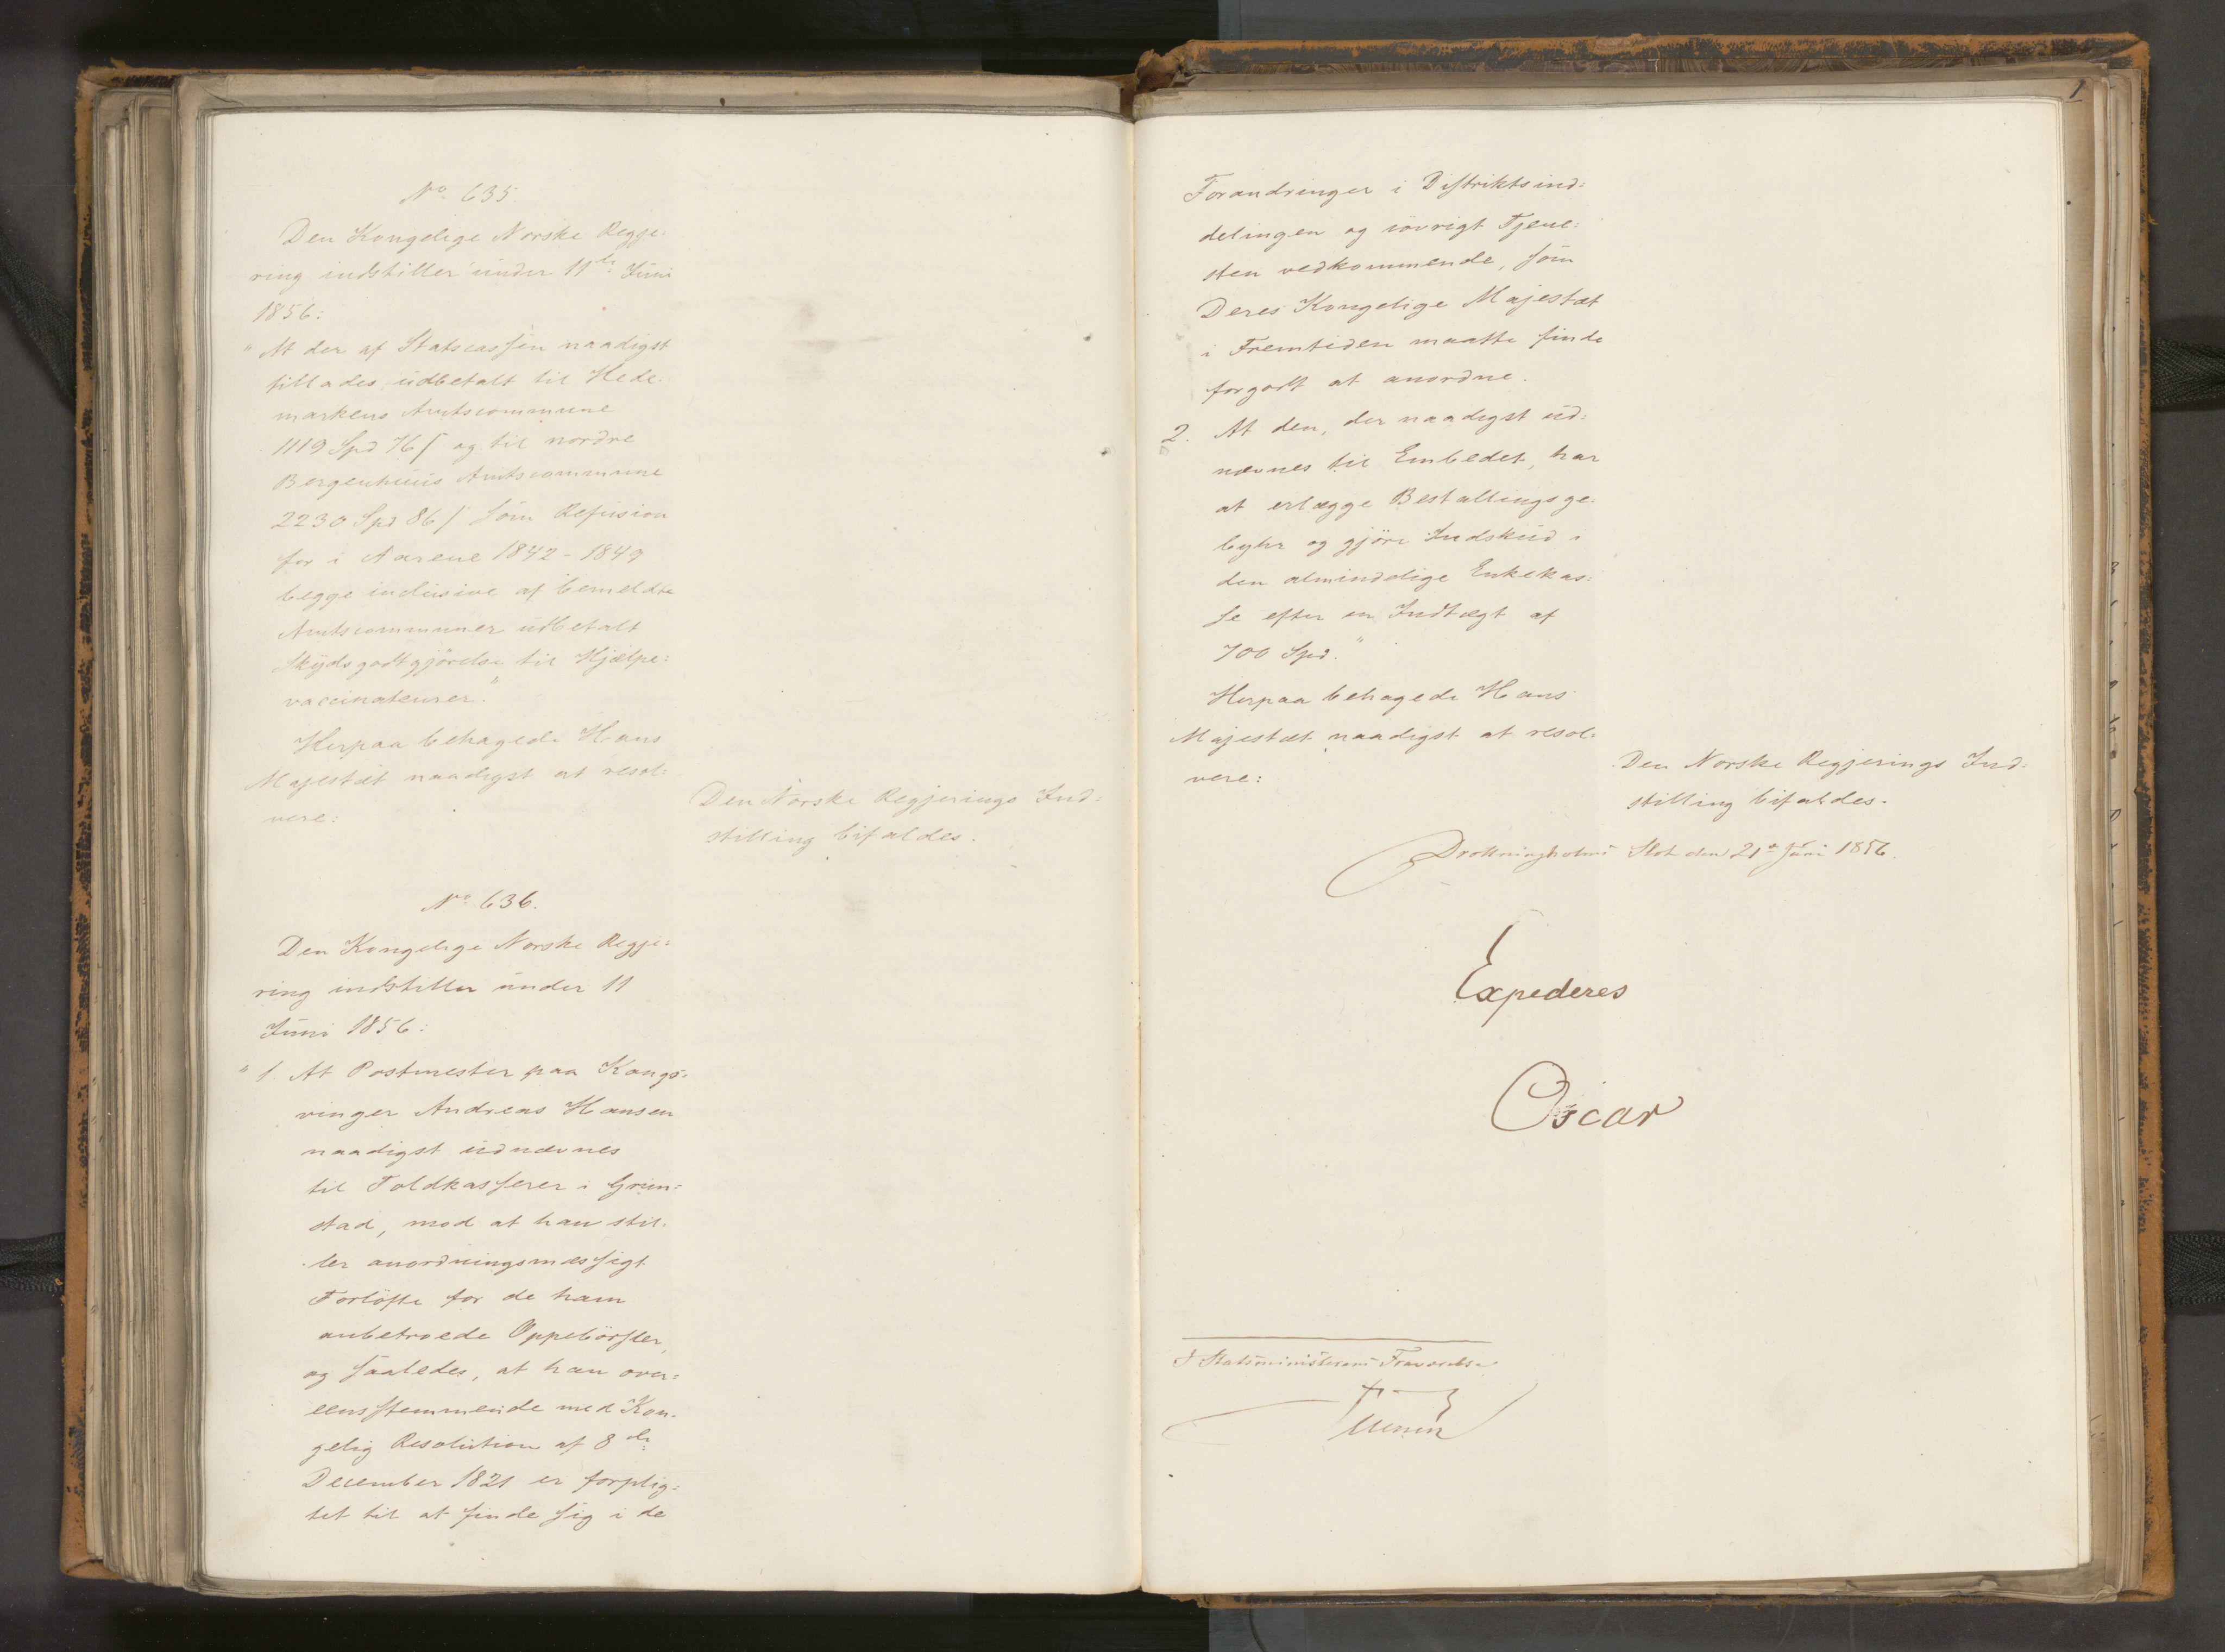 No 635
Den Kongelige Norske Regje:
ring indstiller under 11te Juni
1856:
"At der af Statscassen naadigst
tillades udbetalt til Hede-
markens Amtscommune
1119 Spd 76 ſ og til nordre
Bergenhuus Amtscommune
2230 Spd 86 ſ som Refusion
for i Aarene 1842-1849
begge inclusive af bemeldte
Amtscommuner udbetalt
Skydsgodtgjörelse til Hjælpe:
vaccinateurer."
Herpaa behagede Hans
Majestæt naadigst at resol:
vere:
Den Norske Regjerings Ind:
stilling bifaldes.
No 636.
Den Kongelige Norske Regje:
ring indstiller under 11
Juni 1856:
"1. At Postmester paa Kongs-
vinger Andreas Hansen
naadigst udnævnes
til Toldkasserer i Grim:
stad, mod at han stil-
ler anordningsmæssigt
Forlöfte for de ham
anbetroede Oppebörsler,
og saaledes, at han over:
eensstemmende med Kon-
gelig Resolution af 8de
December 1821 er forplig:
tet til at finde sig i de
1
Forandringer i Distriktsind:
delingen og iövrigt Tjene:
sten vedkommende, som
Deres Kongelige Majestæt
i Fremtiden maatte finde
forgodt at anordne.
2. At den, der naadigst ud:
nævnes til Embedet, har
at erlægge Bestallingsge-
byhr og gjöre Indskud i
den almindelige Enkekas:
se efter en Indtægt af
700 Spd."
Herpaa behagede Hans
Majestæt naadigst at resol:
vere:
Den Norske Regjerings Ind:
stilling bifaldes.
Drottningholms Slot den 21de Juni 1856.
Expederes
Oscar
I Statsministerens Fraværelse